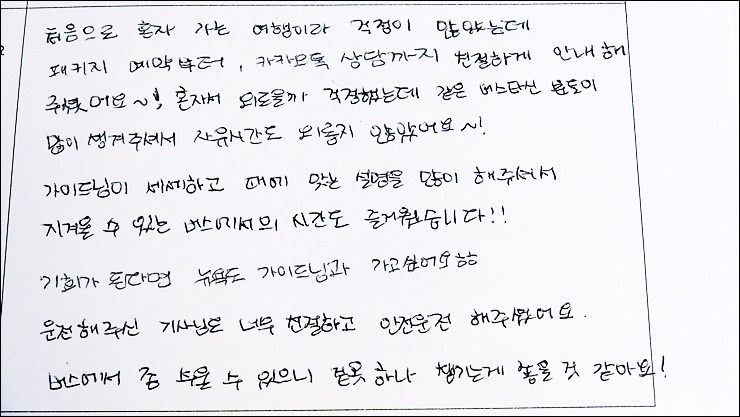 처음으로 혼자 가는 여행이라 걱정이 많았는데
패키지 예약부터, 카카오톡 상담까지 친절하게 안내해
주셨어요~!, 혼자서 외로울까 걱정했는데 같은 버스타신 분들이
많이 챙겨주셔서 자유시간도 외롭지 않았어요~!
가이드님이 세세하고 때에 맞는 설명을 많이 해주셔서
지겨울 수 있는 버스에서의 시간도 즐거웠습니다!!
기회가 된다면 뉴욕도 가이드님과 가고싶어요ㅎㅎ
운전해주신 기사님도 너무 친절하고 안전운전 해주셨어요.
버스에서 좀 추울 수 있으니 겉옷 하나 챙기는게 좋을 것 같아요!